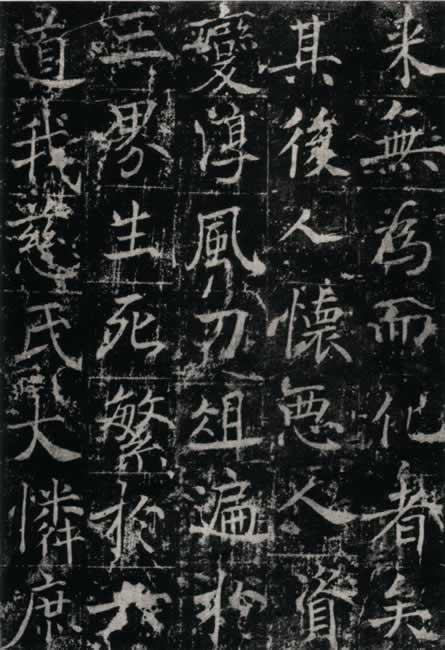 来無為而化者矣
其後人懷悪人資
變淳風刃俎遍於
三界生死繁於六
道我慈氏大憐庶